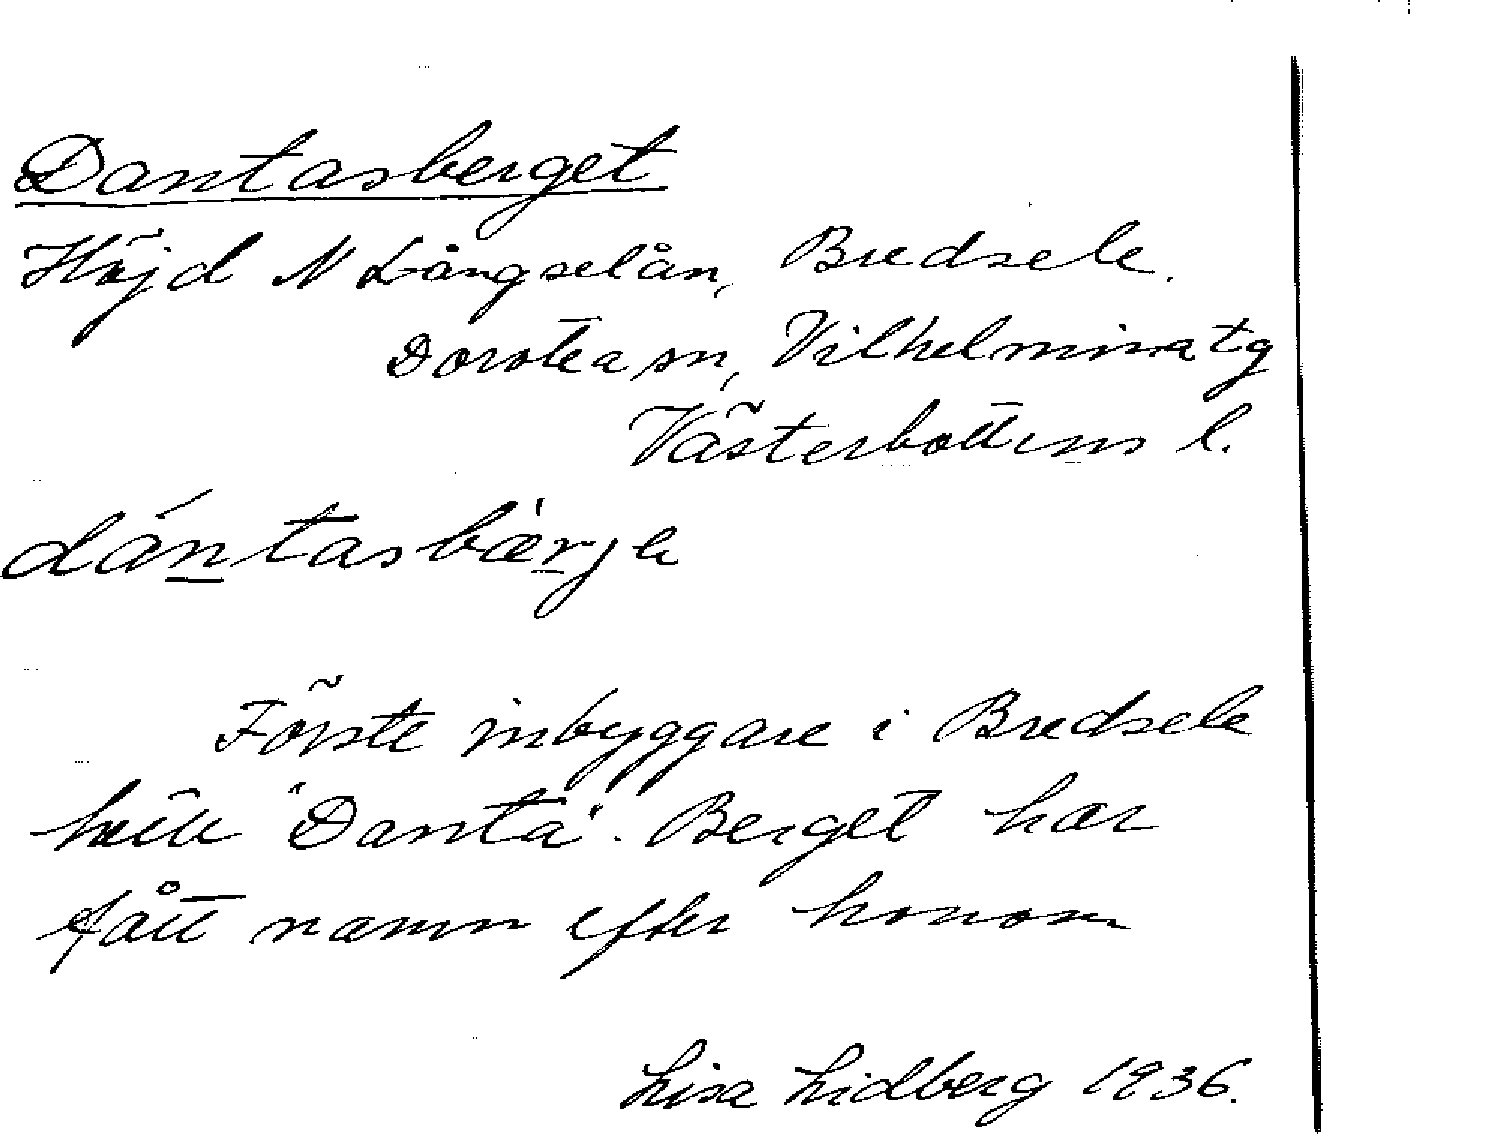 Dantasberget
Höjd N Långselån, Bredsele.
Dorotea sn, Vilhelmina tg
Västerbottens l.
dántasbæ̀rjə
Förste inbyggare i Bredsele
hette "Danta". Berget har
fått namn efter honom
Lisa Lidberg 1936.